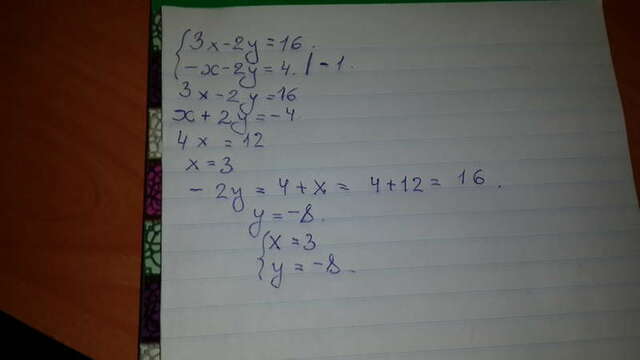 { 3x-2y=16.
-x-2y=4. | -1.
3x-2y=16
x+2y=-4
4x =12
x=3
-2y = 4+x = 4+12= 16.
y=-8.
{ x=3
y=-8.